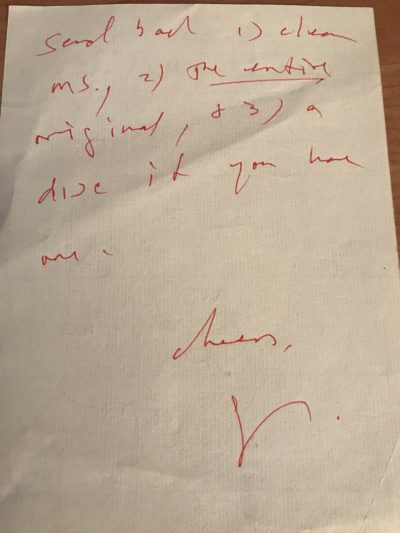 send back 1) clean
ms., 2) the entire
original, & 3) a
disc if you have
one.
cheers,
V.